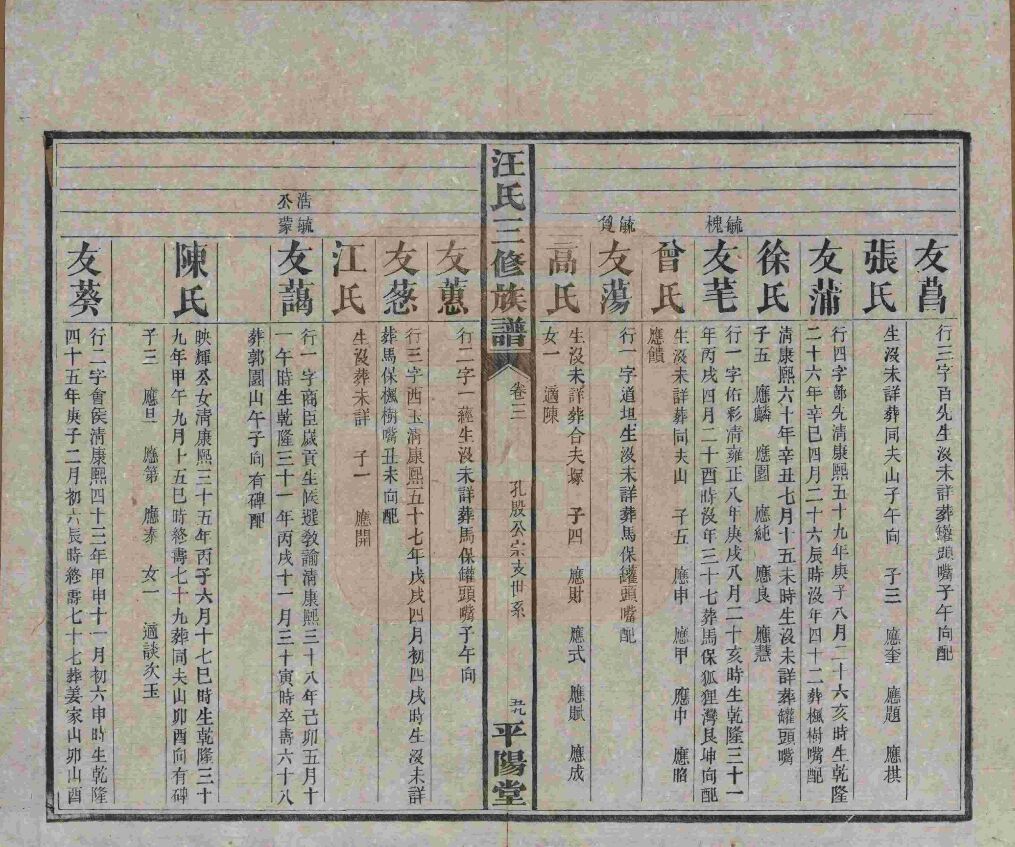 友菖
行三字百先生沒未詳葬罐頭嘴子午向配
張氏
生沒未詳葬同夫山子午向 子三 應奎 應題 應棋
友蒲
行四字 先清康熙五十九年庚子八月二十六亥時生乾隆
二十六年辛巳四月二十六辰時沒年四十二葬楓樹嘴配
徐氏
清康熙六十年辛丑七月十五未時生沒未詳葬罐頭嘴
子五 應麟 應圍 應純 應良 應慧
毓槐
友芼
行一字佑彩清雍正八年庚戌八月二十亥時生乾隆三十一
年丙戌四月二十酉時沒年三十七葬馬保狐狸灣艮坤向配
曾氏
生沒未詳葬同夫山 子五 應申 應甲 應中 應
應饋
毓
友蕩
行一字道坦生沒未詳葬馬保罐頭嘴配
高氏
生沒未詳葬合夫塚 子四 應財 應式 應賦 應成
女一 適陳
汪氏三修族譜
卷三
孔殷公宗支世系
平陽堂
友蕙
行二字一經生沒未詳葬馬保罐頭嘴子午向
友葱
行三字酉玉清康熙五十七年戊戌四月初四戌時生沒未詳
葬馬保楓樹嘴丑未向配
江氏
生沒葬未詳 子一 應開
浩公
毓蒙
友藹
行一字商臣歲貢生候選教諭清康熙三十八年己卯五月十
一午時生乾隆三十一年丙戌十一月三十寅時卒壽六十八
葬郭園山午子向有碑配
陳氏
映輝公女清康熙三十五年丙子六月十七巳時生乾隆三十
九年甲午九月十五巳時終壽七十九葬同夫山卯酉向有碑
子三 應旦 應第 應泰 女一 適談次玉
友葵
行二字會侯清康熙四十三年甲申十一月初六申時生乾隆
四十五年庚子二月初六辰時終壽七十七葬姜家山卯山酉